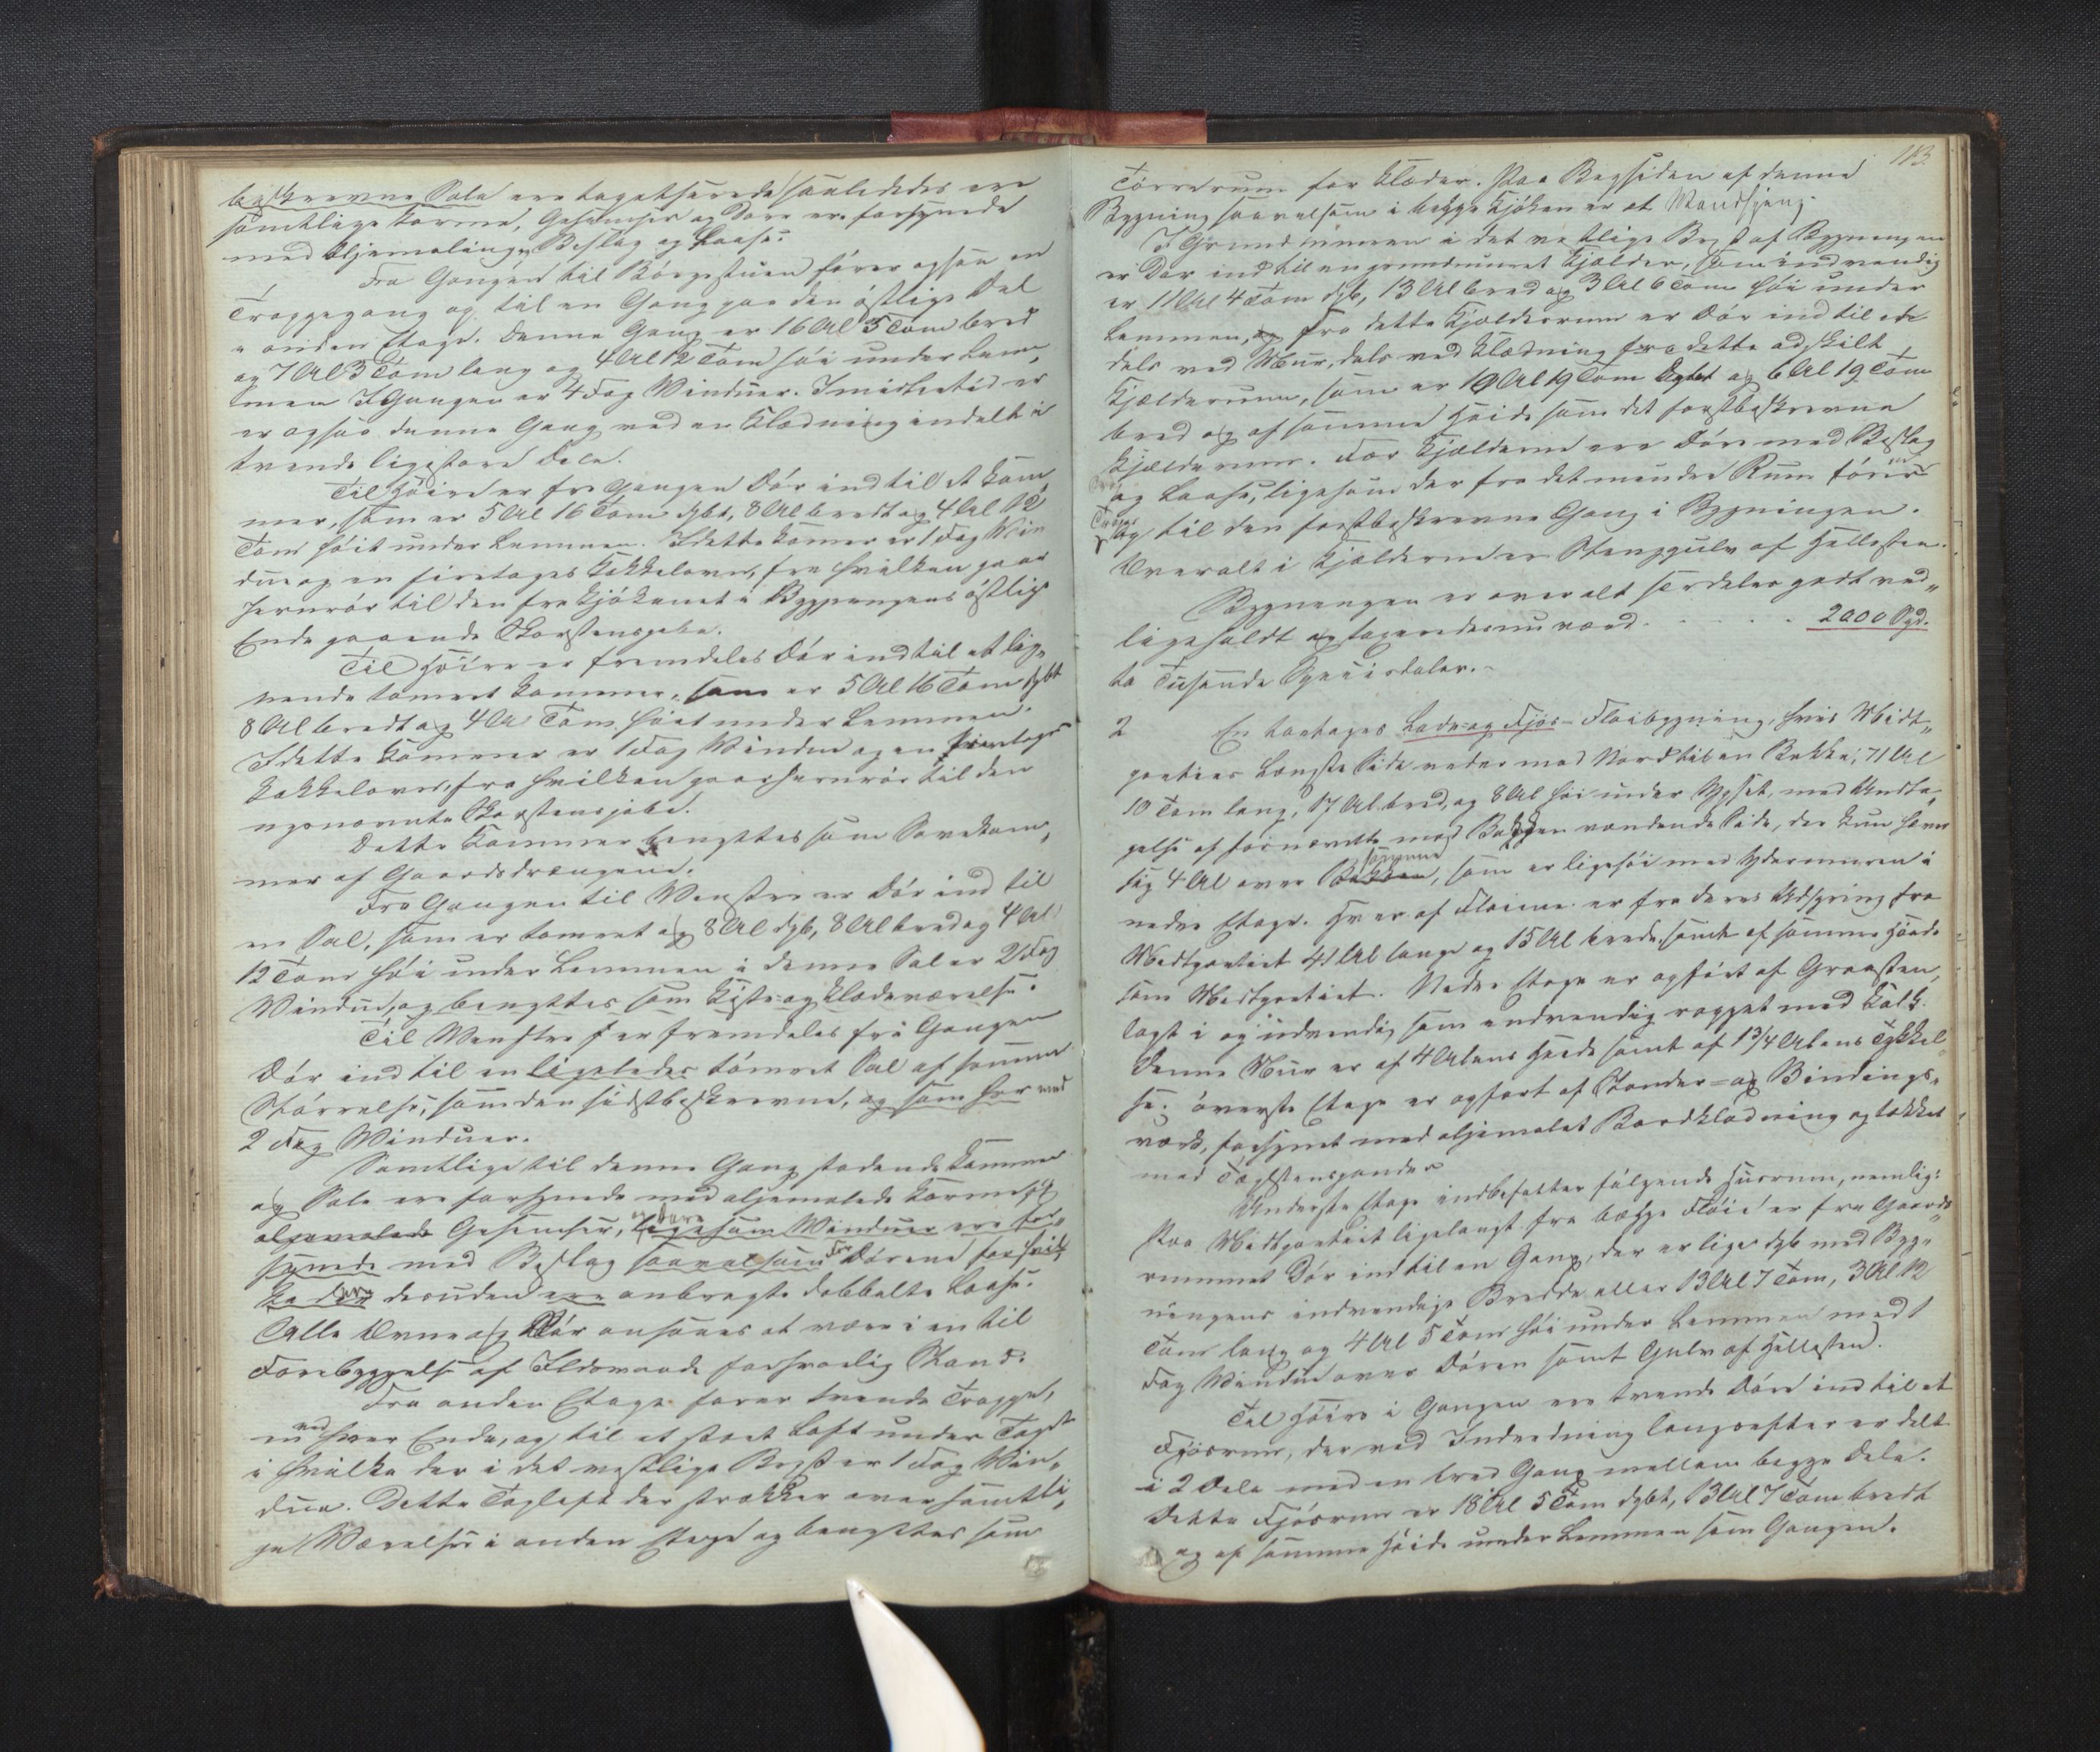 beskrevne Sale ere tapetserede saaledes ere
samtlige Karme, Gesimser og Døre ere forsynede
med Oljemaling, Beslag og Laase.
Fra Gangen til Borgestuen fører ogsaa en
Trappegang op til en Gang paa den østlige Del
i anden Etage. Denne Gang er 16 Al 5 Tom bred
og 7 Al 3 Tom lang og 4 Al 12 Tom høi under Lem-
men I Gangen er 4 Fag Vinduer. Imidlertid er
er ogsaa denne Gang ved en Klædning inddelt i
tvende ligestore Dele.
Til Høire er fra Gangen Dør ind til et Kam-
mer, som er 5 Al 16 Tom dybt, 8 Al bredt og 4 Al 12
Tom høit under Lemmen. I dette Kamer er 1 Fag Vin
due og en firetages Kakkelovn, fra hvilken gaar
Jernrør til den fra Kjøkenet i Bygningens østlige
Ende gaaende Skorstenspibe.
Til Høire er fremdeles Dør ind til et lig-
nende tømret Kammer, som er 5 Al 16 Tom dybt
8 Al bredt og 4 Al Tom høit under Lemmen.
I dette Kammer er 1 Fag Vindue og en firetages
Kakkelovn, fra hvilken gaar Jernrør til den
nysnævnte Skorstenspibe.
Dette Kammer benyttes som Sovekam-
mer af Gaardsdrengene.
Fra Gangen til Venstre er Dør ind til
en Sal, som er tømret og 8 Al dyb, 8 Al bred og 4 Al
12 Tom høi under Lemmen i denne Sal er 2 Fag
Vindue, og benyttes som Kiste- og Klædeværelse.
Til Venstre er fremdeles fra Gangen
Dør ind til en ligeledes tømret Sal af samme
Størrelse, som den sidstbeskrevne, og som har med
2 Fag Vinduer.
Samtlige til denne Gang stødende Kammere
og Sale ere forsynede med oljemalede Karme og
oljemalede Gesimser, og Døre ligesom Vinduer ere for-
synede med Beslag saavelsom for Dørene for hvil-
ke der desuden ere anbragte dobbelte Laase.
Alle Ovne og Rør ansees at være i en til
Forebyggelse af Ildsvaade forsvarlig Stand.
Fra anden Etage fører tvende Trapper,
en ved hver Ende, op til et stort Loft under Taget
i hvilke der i det vestlige Bryst er 1 Fag Vin-
due. Dette Tagloft der strækker over samtli-
ge Værelser i anden Etage og benyttes som
113.
Tørrerum for Klæder. Paa Bagsiden af denne
Bygning saavelsom i begge Kjøken er et Vandspring.
I Grundmuren i det vestlige Bryst af Bygningen
er Dør ind til en grundmuret Kjælder, som indvendig
er 11 Al 4 Tom dyb, 13 Al bred og 3 Al 6 Tom høi under
Lemmen, og fra dette Kjælderrum er Dør ind til et
dels ved Muur, dels ved Klædning fra dette adskilt
Kjælderrum, som er 10 Al 19 Tom dybt og 6 Al 19 Tom
bred og af samme Høide som det førstbeskrevne
Kjælderrum. For Kjælderne ere Døre med Beslag
og Laase, ligesom der fra det mindre Rum fører en
Trappe op til den førstbeskrevne Gang i Bygningen.
Overalt i Kjælderne er Stenggulv af Hellesten.
Bygningen er overalt særdeles godt ved-
ligeholdt og taxeredes nu værd . . . . . 2000 Spd.
to Tusende Speciedaler. -
2 En toetages Lade- og Fjøs- Fløibygning, hvis Midt-
partiers længste Side vender mod Nord til en Bakke, 71 Al
10 Tom lang, 17 Al bred, og 8 Al høi under Opset, med Undta-
gelse af fornævnte mod Bakken vendende Side, der kun hæver
sig 4 Al over samme Bakken, som er ligehøi med Ydermuren i
nedre Etage. Hver af Fløiene er fra deres Udspring fra
Midtpartiet 41 Al lange og 15 Al brede, samt af samme Høide
som Midtpartiet. Nedre Etage er opført af Graasten,
lagt i og udvendig som indvendig rappet med Kalk.
Denne Muur er af 4 Alens Høide samt af 1 3/4 Alens Tykkel-
se. Øverste Etage er opført af Stander- og Bindings-
værk, forsynet med oljemalet Bordklædning og tækket
med Teglstenspander
Underste Etage indbefatter følgende Huusrum, nemlig:
Paa Midtpartiet ligelangt fra begge Fløie er fra Gaards-
rummet Dør ind til en Gang, der er lige dyb med Byg-
ningens indvendige Bredde eller 13 Al 7 Tom, 3 Al 12
Tom lang og 4 Al 5 Tom høi under Lemmen med 1
Fag Vindue over Døren samt Gulv af Hellesten.
Til Høire i Gangen ere tvende Døre ind til et
Fjøsrum, der ved Indredning langsefter er delt
i 2 Dele med en bred Gang mellem begge Dele.
Dette Fjøsrum er 18 Al 5 Tom dybt, 13 Al 7 Tom bredt
og af samme Høide under Lemmen som Gangen.